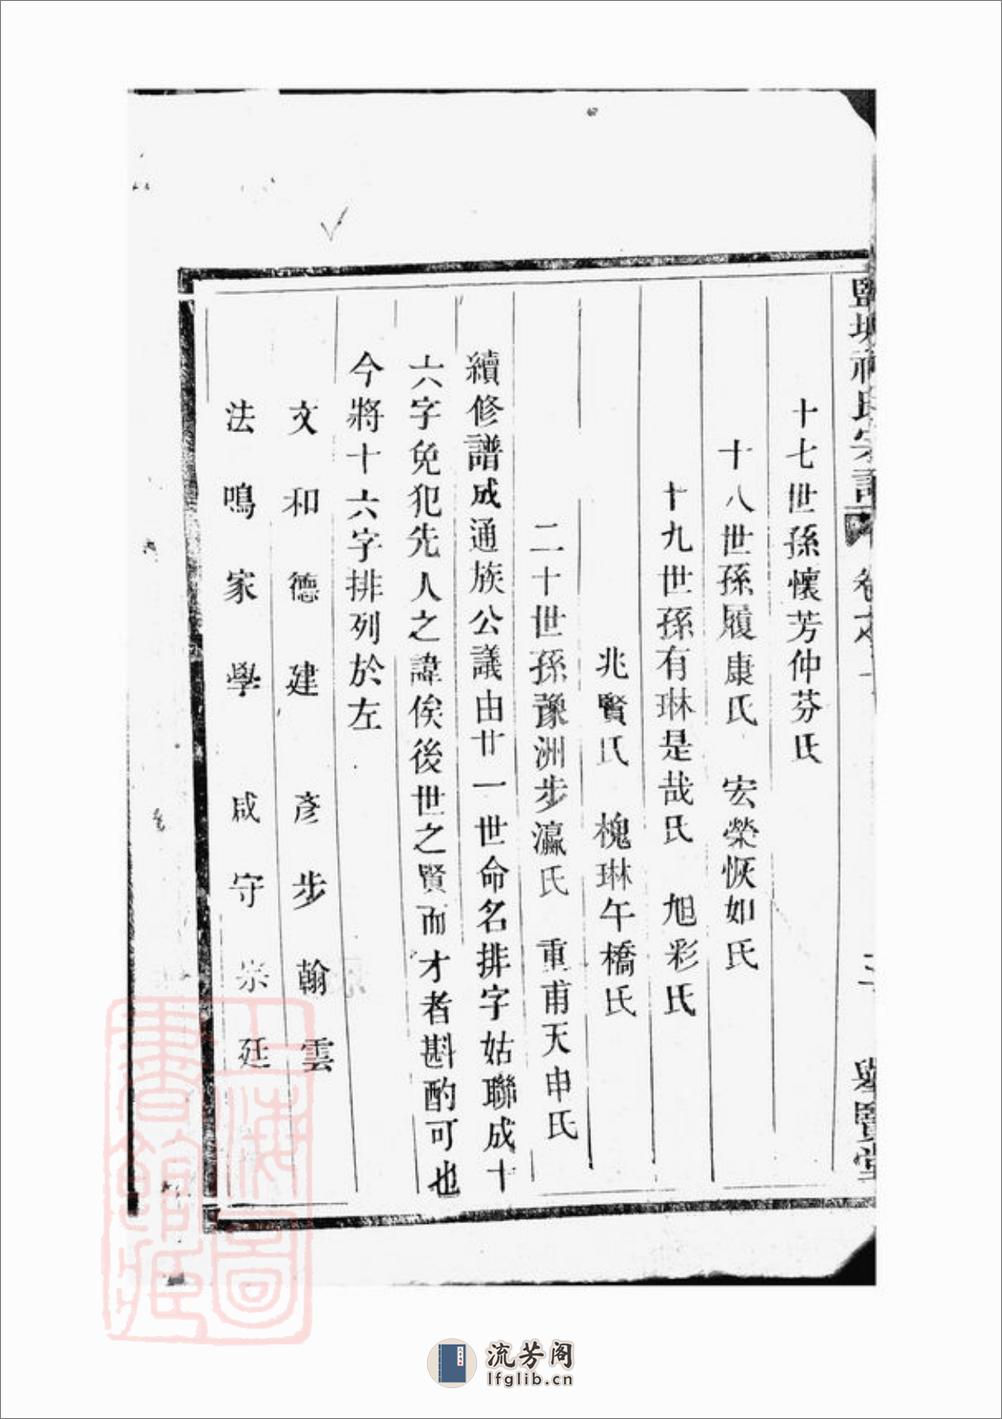 十七世孫懷芳仲芬氏
十八世孫履康氏　宏榮恢如氏
十九世孫有琳是哉氏　旭彩氏
兆賢氏　槐琳午橋氏
二十世孫豫洲步瀛氏　重甫天申氏
續修譜成通族公議由廿一世命名排字姑聯成十
六字免犯先人之諱俟後世之賢而才者斟酌可也
今將十六字排列於左
文和德建　彥步翰雲
法鳴家學　咸守崇廷
上海圖
書館藏
流芳阁
lfglib.cn